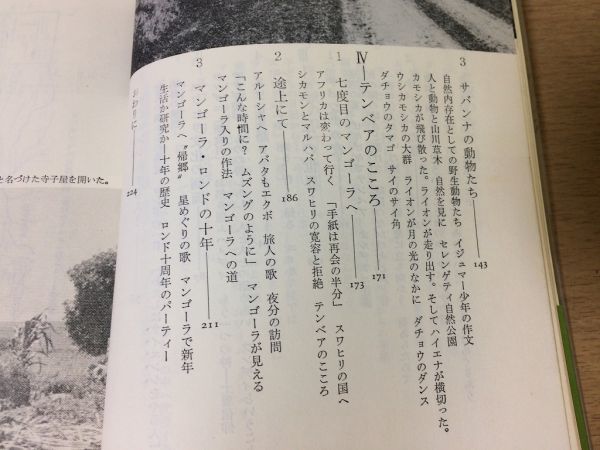 3 サバンナの動物たち――143
自然内存在としての野生動物たち イジュマー少年の作文
人と動物と山川草木 自然を見に セレンゲティ自然公園
カモシカが飛び散った。ライオンが走り出す。そしてハイエナが横切った。
ウシカモシカの大群 ライオンが月の光のなかに ダチョウのダンス
ダチョウのタマゴ サイのサイ角
Ⅳ―テンベアのこころ――171
1 七度目のマンゴーラへ――173
アフリカは変わって行く 「手紙は再会の半分」 スワヒリの国へ
シカモンとマルハバ スワヒリの寛容と拒絶 テンベアのこころ
2 途上にて――186
アルーシャへ アバタもエクボ 旅人の歌 夜分の訪問
「こんな時間に？ ムズングのように」 マンゴーラが見える
マンゴーラ入りの作法 マンゴーラへの道
3 マンゴーラ・ロンドの十年――211
マンゴーラへ〝帰郷〟 星めぐりの歌 マンゴーラで新年
生活か研究か―十年の歴史 ロンド十周年のパーティー
おわりに――224
と名づけた寺子屋を開いた。